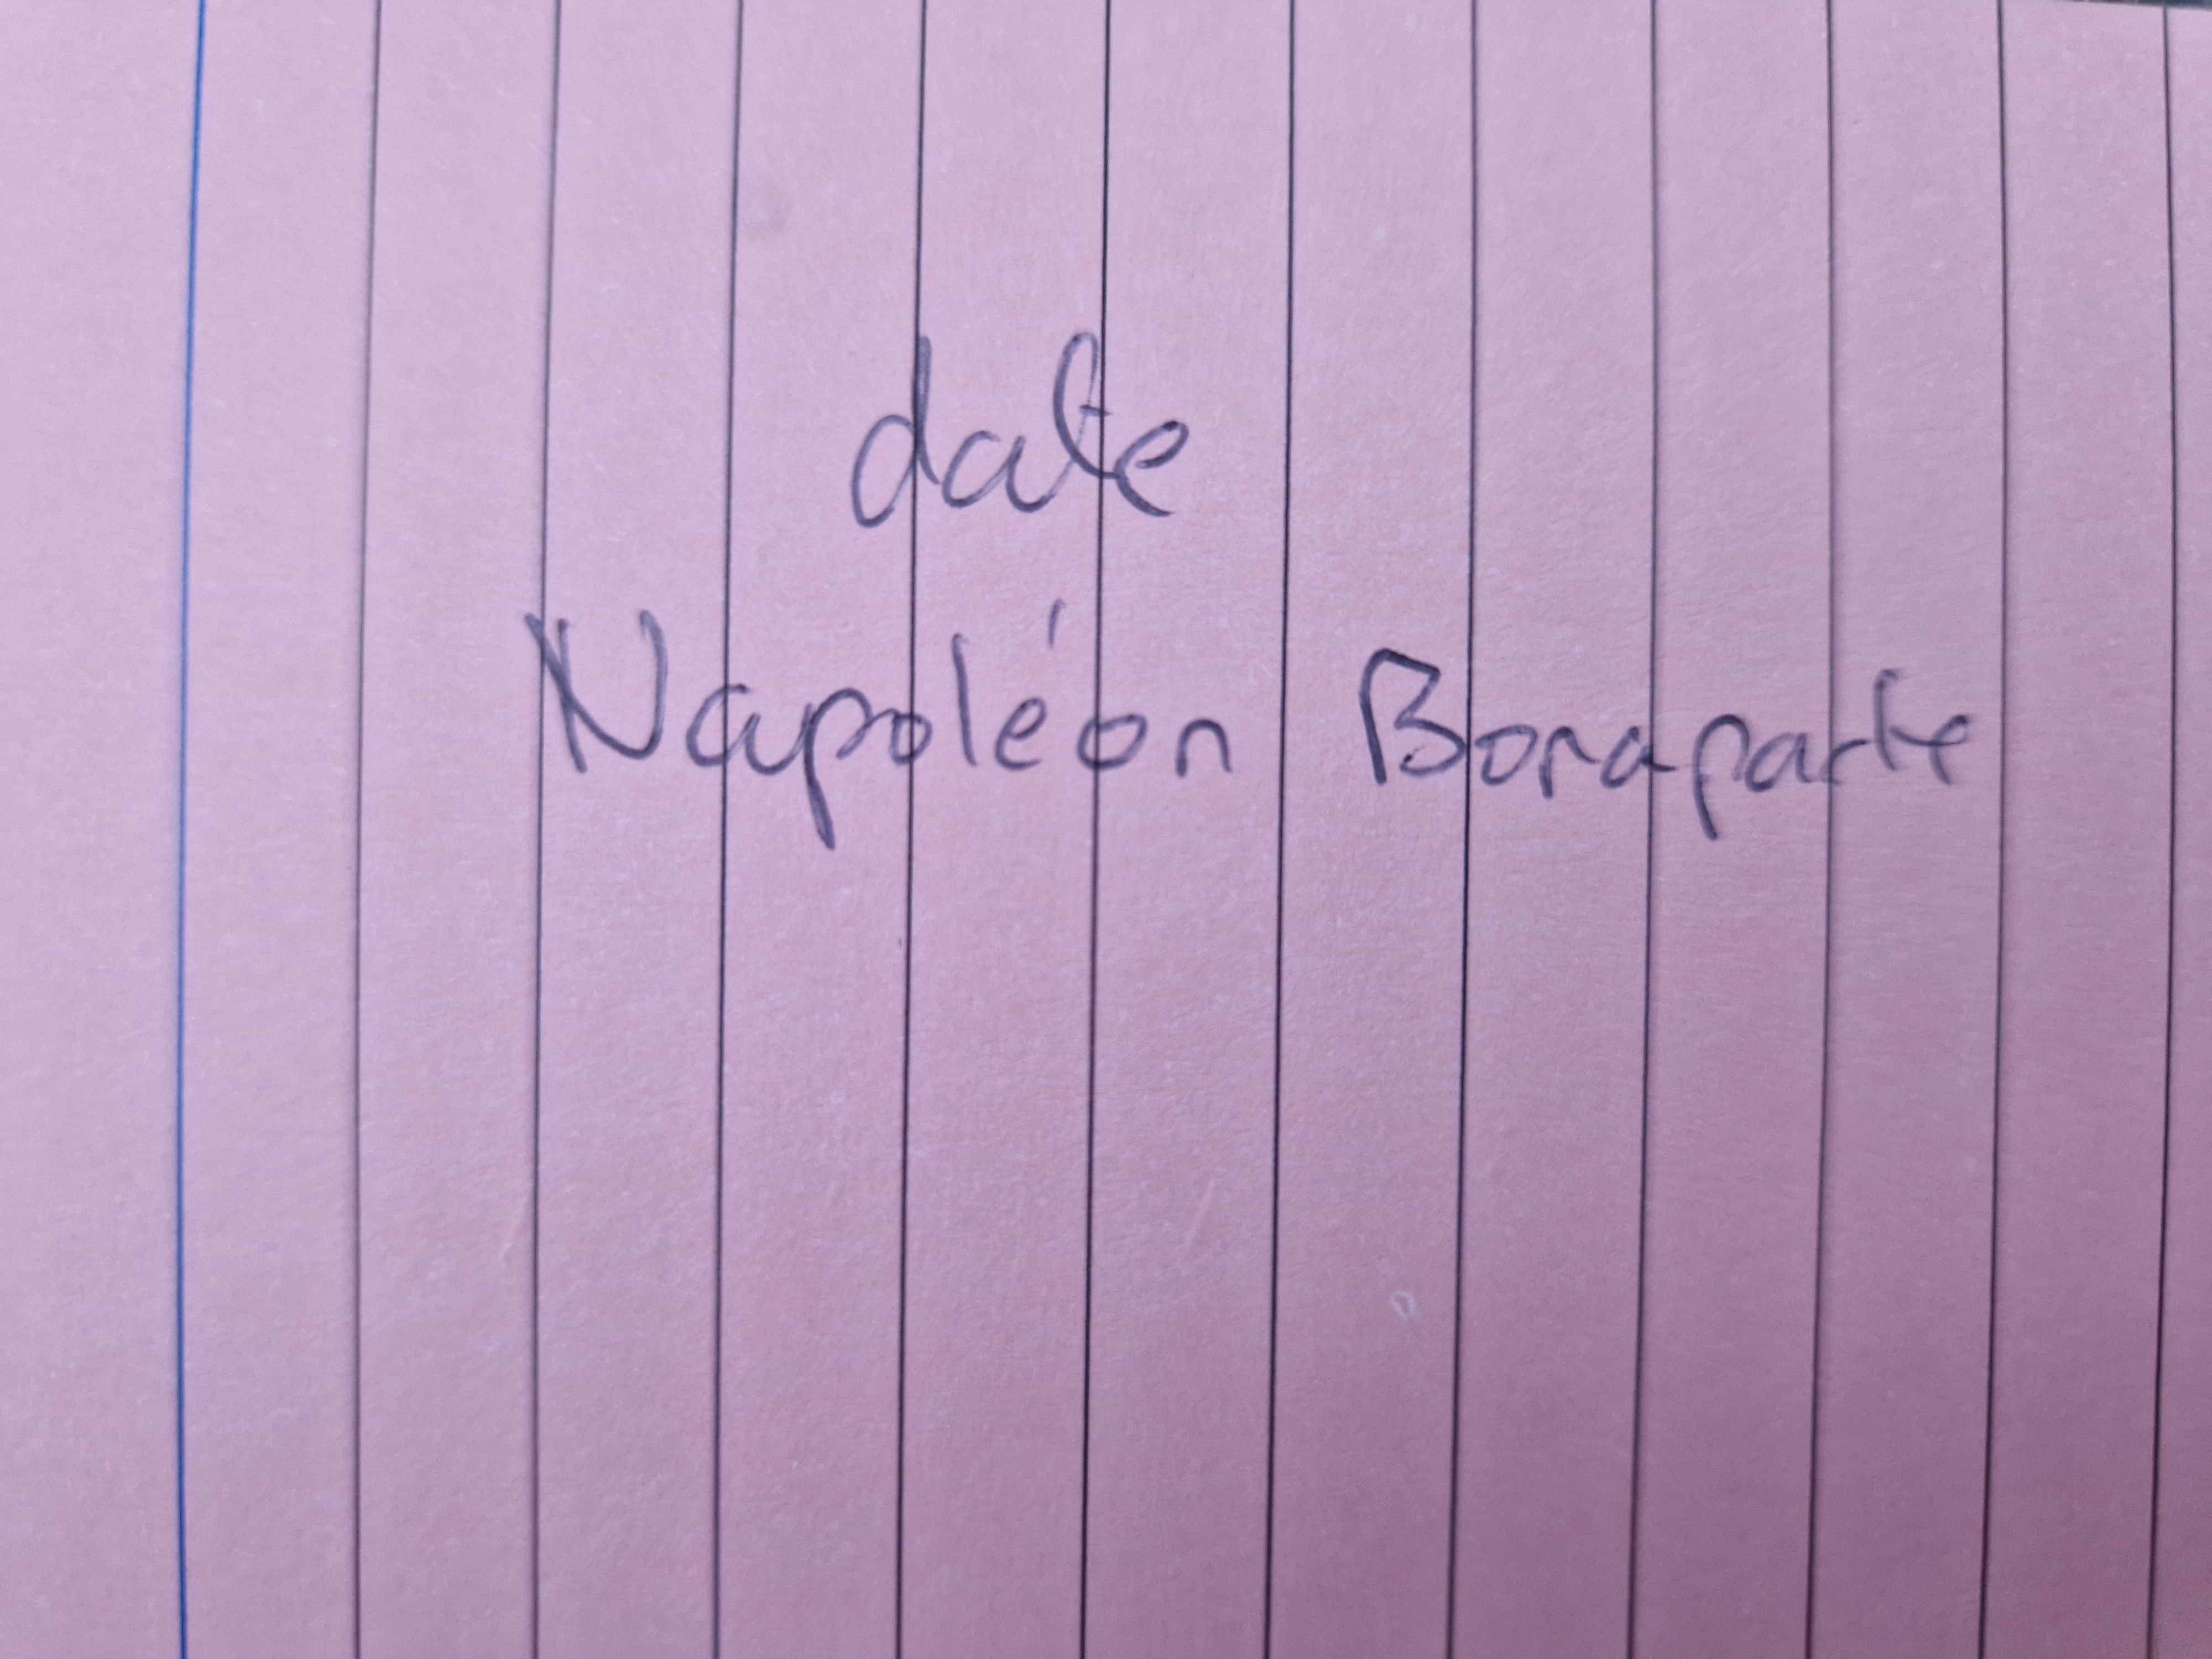 date
Napoléon Bonaparte